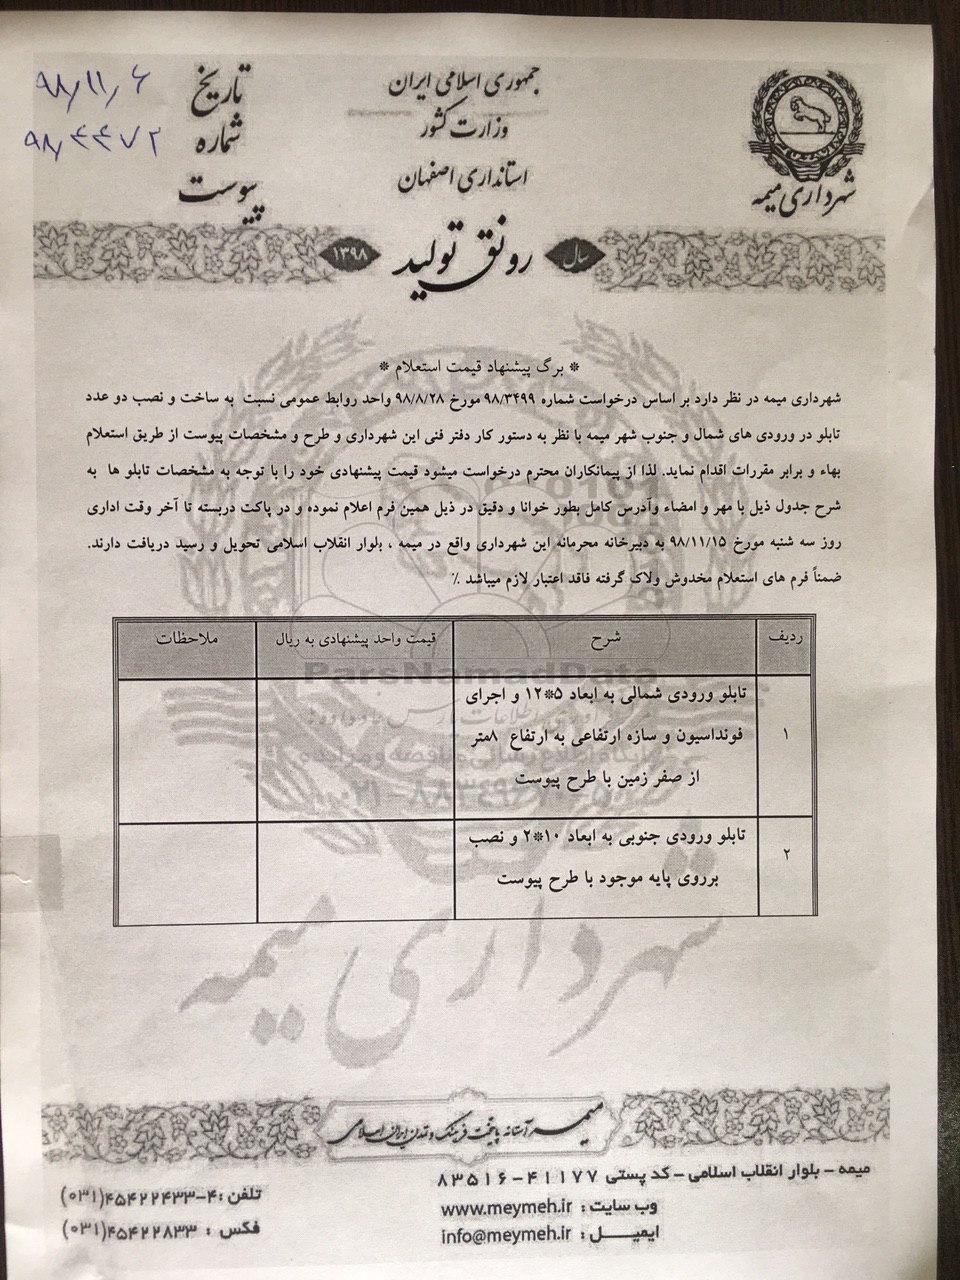 جمهوری اسلامی ایران
وزارت کشور
استانداری اصفهان
شهرداری میمه
تاریخ ۹۸/۱۱/۶
شماره ۹۸/۴۴۷۲
پیوست
سال رونق تولید ۱۳۹۸
* برگ پیشنهاد قیمت استعلام *
شهرداری میمه در نظر دارد بر اساس درخواست شماره ۹۸/۳۴۹۹ مورخ ۹۸/۸/۲۸ واحد روابط عمومی نسبت به ساخت و نصب دو عدد
تابلو در ورودی های شمال و جنوب شهر میمه با نظر به دستور کار دفتر فنی این شهرداری و طرح و مشخصات پیوست از طریق استعلام
بهاء و برابر مقررات اقدام نماید. لذا از پیمانکاران محترم درخواست میشود قیمت پیشنهادی خود را با توجه به مشخصات تابلو ها به
شرح جدول ذیل با مهر و امضاء وآدرس کامل بطور خوانا و دقیق در ذیل همین فرم اعلام نموده و در پاکت دربسته تا آخر وقت اداری
روز سه شنبه مورخ ۹۸/۱۱/۱۵ به دبیرخانه محرمانه این شهرداری واقع در میمه ، بلوار انقلاب اسلامی تحویل و رسید دریافت دارند.
ضمناً فرم های استعلام مخدوش ولاک گرفته فاقد اعتبار لازم میباشد ٪
ردیف شرح قیمت واحد پیشنهادی به ریال ملاحظات
ParsNamadData
۱ تابلو ورودی شمالی به ابعاد ۵*۱۲ و اجرای
فونداسیون و سازه ارتفاعی به ارتفاع ۸متر
از صفر زمین با طرح پیوست
۲ تابلو ورودی جنوبی به ابعاد ۱۰*۲ و نصب
برروی پایه موجود با طرح پیوست
شهرداری میمه
میمه آستانه پایتخت فرهنگ و تمدن ایران اسلامی
میمه - بلوار انقلاب اسلامی - کد پستی ۸۳۵۱۶-۴۱۱۷۷
وب سایت : www.meymeh.ir
ایمیل : info@meymeh.ir
تلفن : ۴-۴۵۴۲۲۴۳۳(۰۳۱)
فکس : ۴۵۴۲۲۸۳۳(۰۳۱)